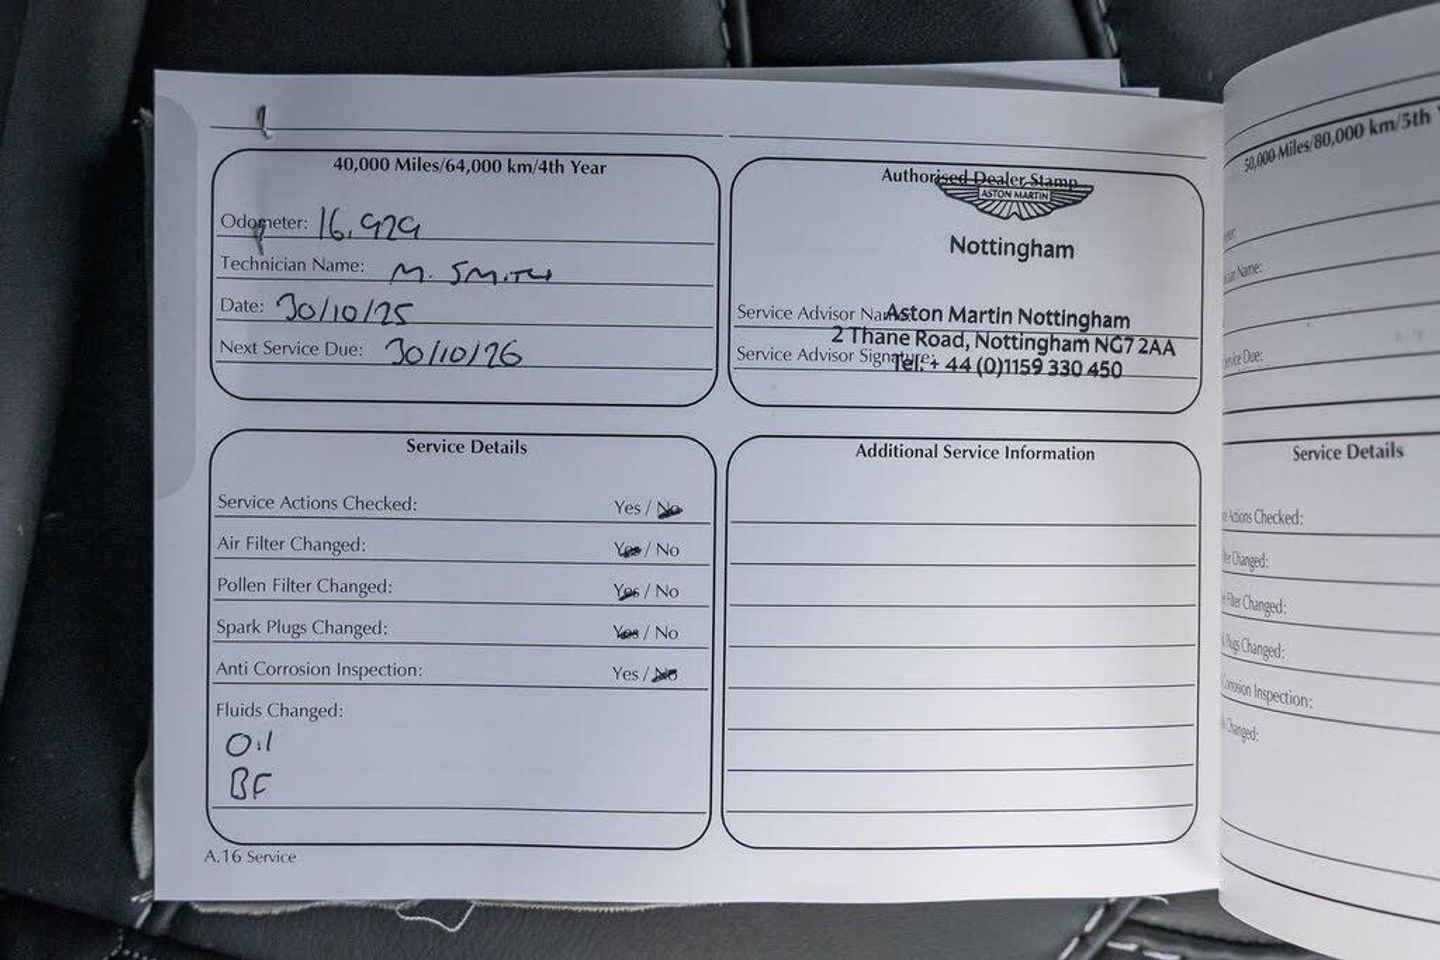 40,000 Miles/64,000 km/4th Year
Odometer: 16,929
Technician Name: M. SMITH
Date: 30/10/25
Next Service Due: 30/10/26
Authorised Dealer Stamp
ASTON MARTIN
Nottingham
Service Advisor Name:
Aston Martin Nottingham
2 Thane Road, Nottingham NG7 2AA
Service Advisor Signature:
Tel: + 44 (0)1159 330 450
Service Details
Service Actions Checked: Yes / No
Air Filter Changed: Yes / No
Pollen Filter Changed: Yes / No
Spark Plugs Changed: Yes / No
Anti Corrosion Inspection: Yes / No
Fluids Changed:
Oil
BF
Additional Service Information
A.16 Service
50,000 Miles/80,000 km/5th
Name:
Due:
Service Details
Actions Checked:
Changed:
Filter Changed:
Plugs Changed:
Corrosion Inspection:
Changed: